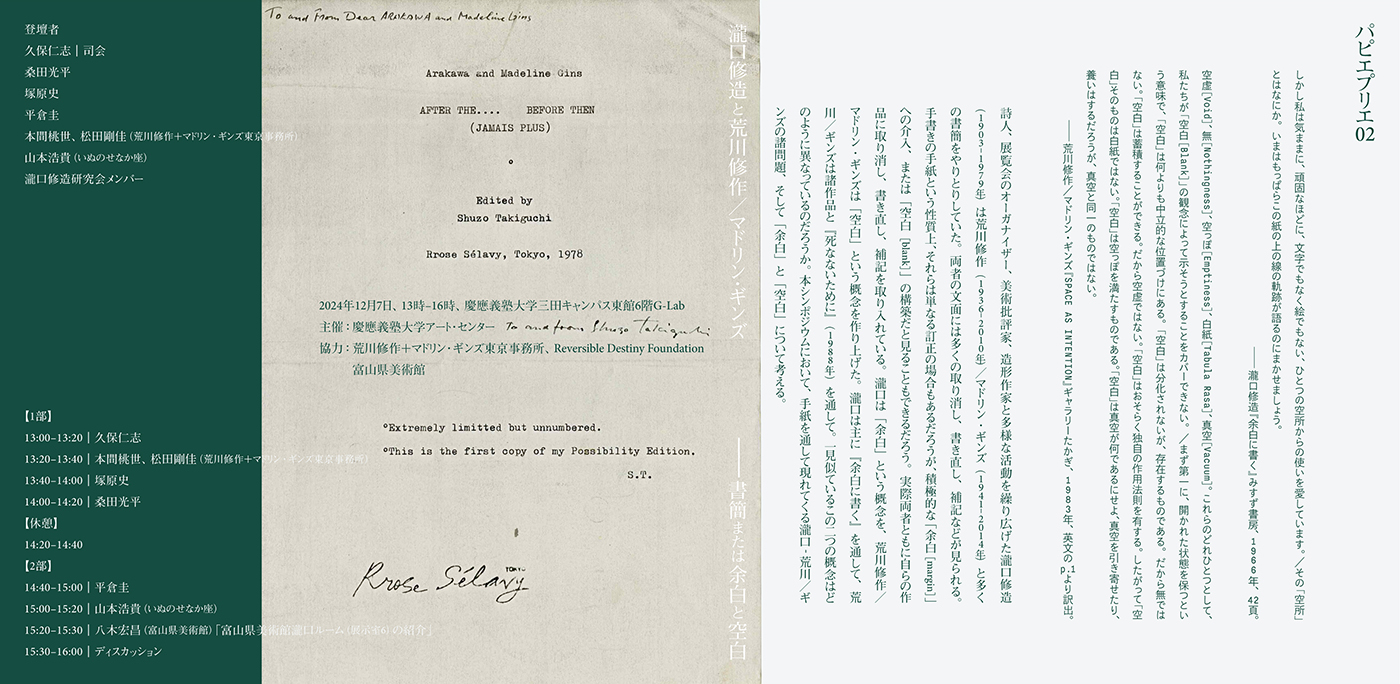 パピエプリエ 02
しかし私は気ままに、頑固なほどに、文字でもなく絵でもない、ひとつの空所からの使いを愛しています。／その「空所」
とはなにか。いまはもっぱらこの紙の上の線の軌跡が語るのにまかせましょう。
――瀧口修造『余白に書く』みすず書房、1966年、42頁。
空虚[Void]、無[Nothingness]、空っぽ[Emptiness]、白紙[Tabula Rasa]、真空[Vacuum]。これらのどれひとつとして、
私たちが「空白[Blank]」の観念によって示そうとすることをカバーできない。／まず第一に、開かれた状態を保つとい
う意味で、「空白」は何よりも中立的な位置づけにある。「空白」は分化されないが、存在するものである。だから無では
ない。「空白」は蓄積することができる。だから空虚ではない。「空白」はおそらく独自の作用法則を有する。したがって「空
白」そのものは白紙ではない。「空白」は空っぽを満たすものである。「空白」は真空が何であるにせよ、真空を引き寄せたり、
養いはするだろうが、真空と同一のものではない。
――荒川修作／マドリン・ギンズ『SPACE AS INTENTION』ギャラリーたかぎ、1983年、英文のp.1より訳出。
詩人、展覧会のオーガナイザー、美術批評家、造形作家と多様な活動を繰り広げた瀧口修造
（1903–1979年）は荒川修作（1936–2010年）／マドリン・ギンズ（1941–2014年）と多く
の書簡をやりとりしていた。両者の文面には多くの取り消し、書き直し、補記などが見られる。
手書きの手紙という性質上、それらは単なる訂正の場合もあるだろうが、積極的な「余白[margin]」
への介入、または「空白[blank]」の構築だと見ることもできるだろう。実際両者ともに自らの作
品に取り消し、書き直し、補記を取り入れている。瀧口は「余白」という概念を、荒川修作／
マドリン・ギンズは「空白」という概念を作り上げた。瀧口は主に『余白に書く』を通して、荒
川／ギンズは諸作品と『死なないために』（1988年）を通して。一見似ているこの二つの概念はど
のように異なっているのだろうか。本シンポジウムにおいて、手紙を通して現れてくる瀧口-荒川／ギ
ンズの諸問題、そして「余白」と「空白」について考える。
瀧口修造と荒川修作／マドリン・ギンズ――書簡または余白と空白
To and From Dear ARAKAWA and Madeline Gins
Arakawa and Madeline Gins
AFTER THE.... BEFORE THEN
(JAMAIS PLUS)
Edited by
Shuzo Takiguchi
Rrose Sélavy, Tokyo, 1978
2024年12月7日、13時–16時、慶應義塾大学三田キャンパス東館6階G-Lab
主催：慶應義塾大学アート・センター
To and from Shuzo Takiguchi
協力：荒川修作＋マドリン・ギンズ東京事務所、Reversible Destiny Foundation
富山県美術館
°Extremely limitted but unnumbered.
°This is the first copy of my Possibility Edition.
S.T.
TOKYO
Rrose Sélavy
登壇者
久保仁志｜司会
桑田光平
塚原史
平倉圭
本間桃世、松田剛佳（荒川修作＋マドリン・ギンズ東京事務所）
山本浩貴（いぬのせなか座）
瀧口修造研究会メンバー
【1部】
13:00–13:20｜久保仁志
13:20–13:40｜本間桃世、松田剛佳（荒川修作＋マドリン・ギンズ東京事務所）
13:40–14:00｜塚原史
14:00–14:20｜桑田光平
【休憩】
14:20–14:40
【2部】
14:40–15:00｜平倉圭
15:00–15:20｜山本浩貴（いぬのせなか座）
15:20–15:30｜八木宏昌（富山県美術館）「富山県美術館瀧口ルーム（展示室6）の紹介」
15:30–16:00｜ディスカッション